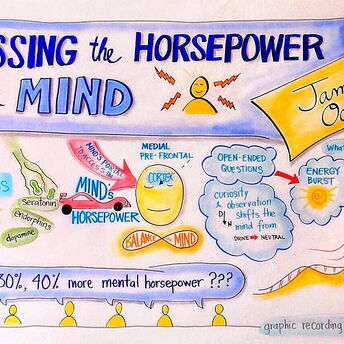 SSING the HORSEPOWER
MIND
Jam
MIND'S
MEDIAL
PRE-FRONTAL
CORTEX
OPEN-ENDED
QUESTIONS
curiosity
& observation
shifts the
mind from
DRIVE → NEUTRAL
What
ENERGY
BURST
S
Seratonin
endorphins
dopamine
MIND'S
HORSEPOWER
BALANCE MIND
30%, 40% more mental horsepower ???
graphic recording